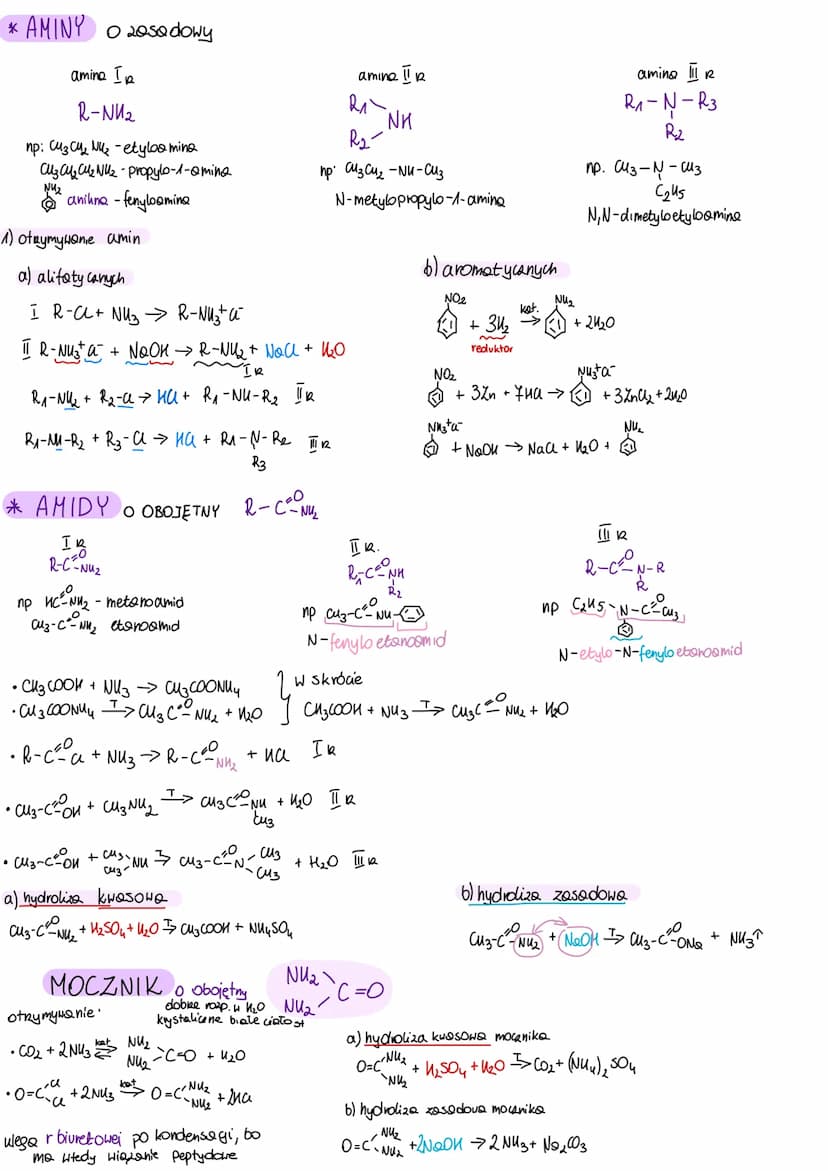 * AMINY O zasadowy
amina I R
amina II R
amina III R
R-NH2
R1
NH
R2
R1-N-R3
R2
np: CH3CH2NH2 - etyloamina
CH3CH2CH2NH2 - propylo-1-amina
NH2
anilina - fenyloamina
np. CH3CH2-NH-CH3
N-metylopropylo-1-amina
np. CH3-N-CH3
C2H5
N,N-dimetyloetyloamina
1) otrzymywanie amin
a) alifatycznych
I R-Cl + NH3 → R-NH3+Cl-
II R-NH3+Cl- + NaOH → R-NH2 + NaCl + H2O
I R
R1-NH2 + R2-Cl → HCl + R1-NH-R2 II R
R1-NH-R2 + R3-Cl → HCl + R1-N-R2 III R
R3
b) aromatycznych
NO2 kat. NH2
+ 3H2 → + 2H2O
reduktor
NO2 NH3+Cl-
+ 3Zn + 7HCl → + 3ZnCl2 + 2H2O
NH3+Cl- NH2
+ NaOH → NaCl + H2O +
* AMIDY O OBOJĘTNY R-C=O NH2
I R
R-C=O -NH2
np HC=O -NH2 - metanoamid
CH3-C=O -NH2 etanoamid
II R.
R1-C=O -NH
R2
np CH3-C=O -NH-
N-fenyloetanoamid
III R
R-C=O -N-R
R
np C2H5-N-C=O -CH3
N-etylo-N-fenyloetanoamid
• CH3COOH + NH3 → CH3COONH4
• CH3COONH4 T→ CH3C=O -NH2 + H2O
} w skrócie
CH3COOH + NH3 T→ CH3C=O -NH2 + H2O
• R-C=O -Cl + NH3 → R-C=O -NH2 + HCl I R
• CH3-C=O -OH + CH3NH2 T→ CH3C=O -NH + H2O II R
CH3
• CH3-C=O -OH + CH3 CH3 NH T→ CH3-C=O -N- CH3 CH3 + H2O III R
a) hydroliza kwasowa
CH3-C=O -NH2 + H2SO4 + H2O T→ CH3COOH + NH4SO4
b) hydroliza zasadowa
CH3-C=O -NH2 + NaOH T→ CH3-C=O -ONa + NH3↑
MOCZNIK O obojętny
dobrze rozp. w H2O
krystaliczne białe ciało st
NH2
NH2
C=O
otrzymywanie:
• CO2 + 2NH3 kat ⇌ NH2 NH2 C=O + H2O
• O=C Cl Cl + 2NH3 kat → O=C NH2 NH2 + 2HCl
ulega r biuretowej po kondensacji, bo
ma wtedy wiązanie peptydowe
a) hydroliza kwasowa mocznika
O=C NH2 NH2 + H2SO4 + H2O T→ CO2 + (NH4)2SO4
b) hydroliza zasadowa mocznika
O=C NH2 NH2 + 2NaOH → 2NH3 + Na2CO3